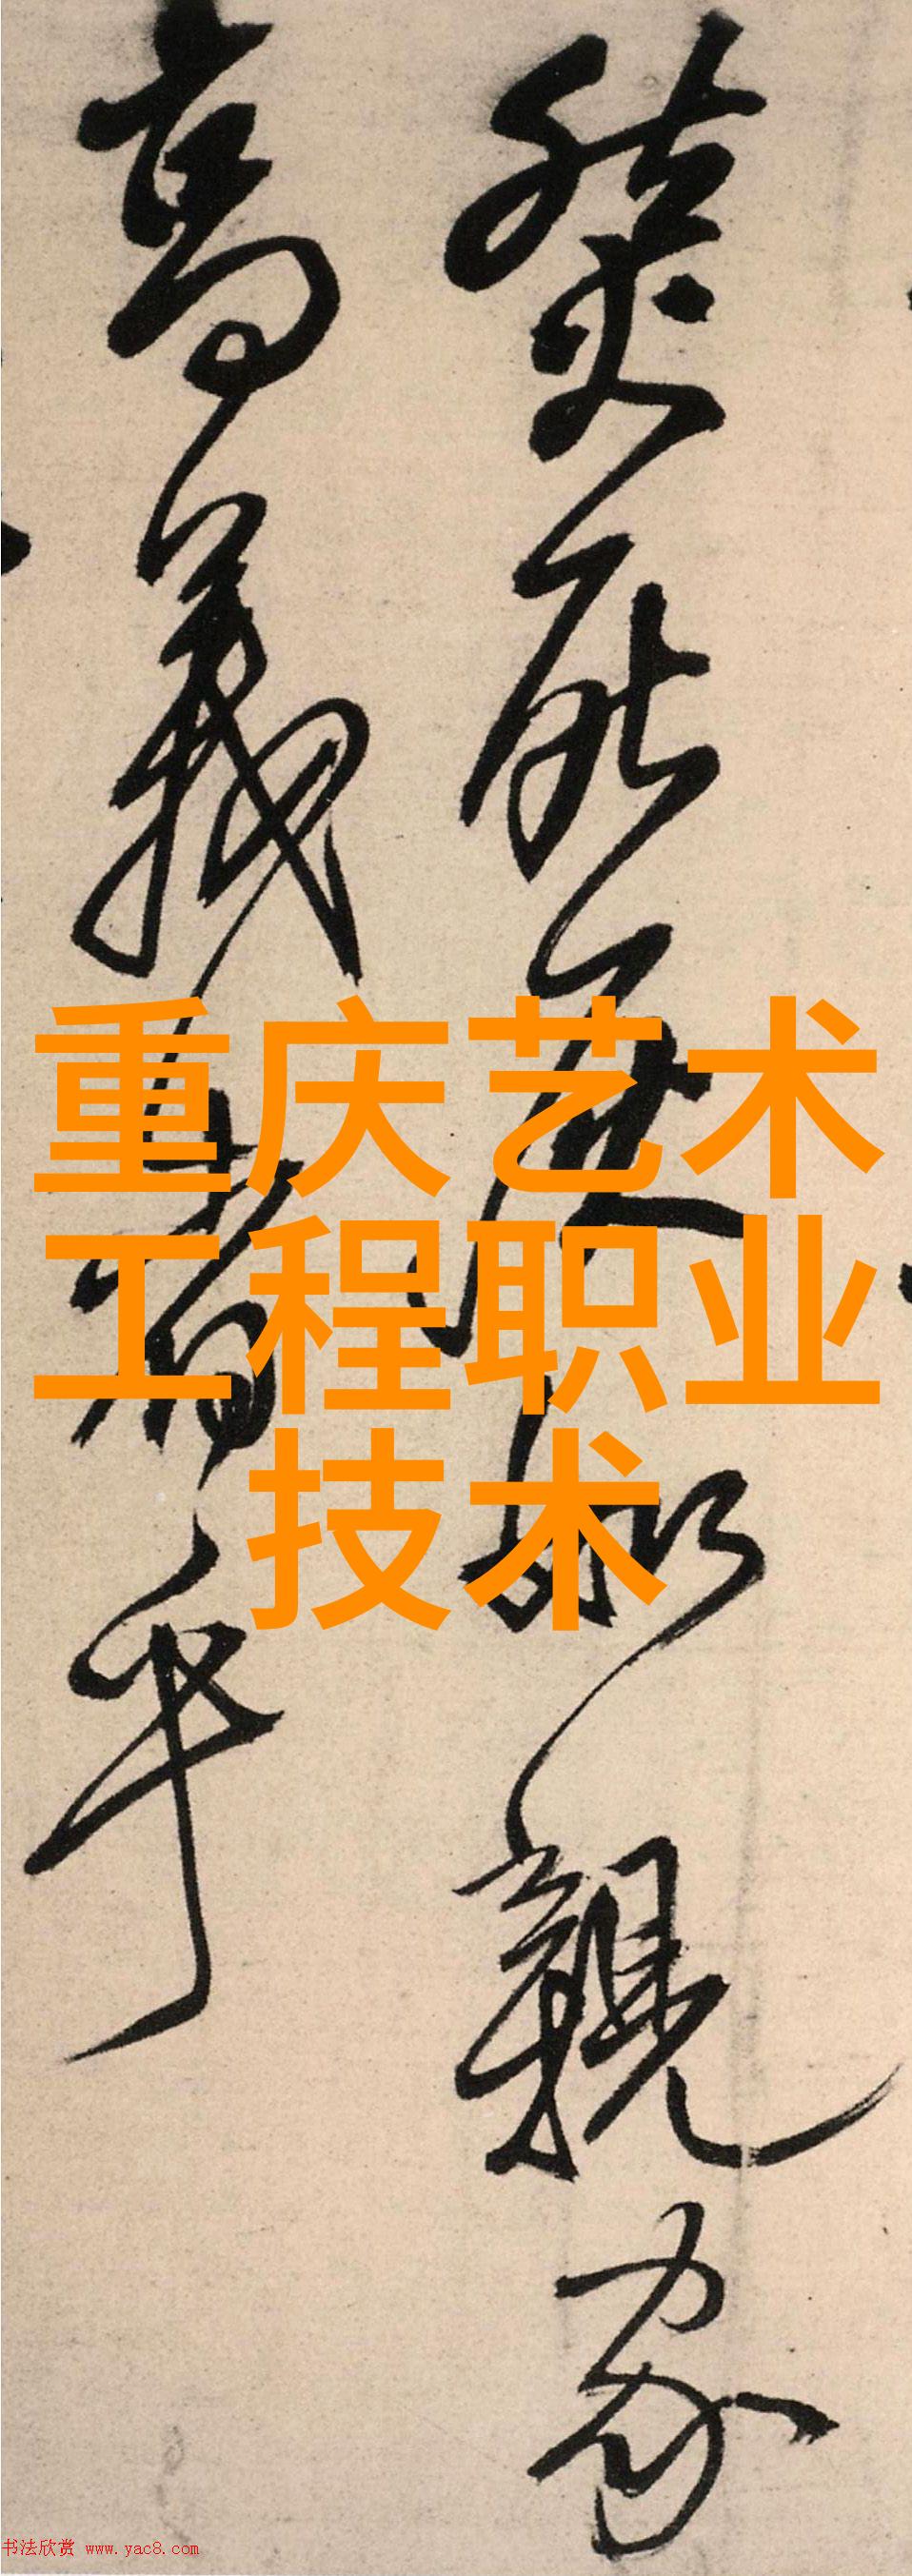 重庆艺术
工程职业
技术
親家
高義者乎
书法欣赏 www.yac8.com